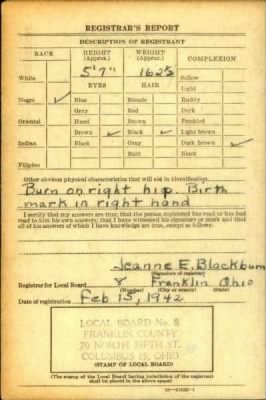 REGISTRAR'S REPORT
DESCRIPTION OF REGISTRANT
RACE HEIGHT (Approx.) WEIGHT (Approx.) COMPLEXION
White 5'7" 162½ Sallow
EYES HAIR Light
Negro ✓ Blue Blonde Ruddy
Gray Red Dark
Oriental Hazel Brown Freckled
Brown ✓ Black ✓ Light brown
Indian Black Gray Dark brown ✓
Bald Black
Filipino
Other obvious physical characteristics that will aid in identification
Burn on right hip. Birth
mark in right hand
I certify that my answers are true; that the person registered has read or has had
read to him his own answers; that I have witnessed his signature or mark and that
all of his answers of which I have knowledge are true, except as follows:
Jeanne E. Blackburn
(Signature of registrar)
Registrar for Local Board 8 Franklin Ohio
(Number) (City or county) (State)
Date of registration Feb 15, 1942
LOCAL BOARD No. 8
FRANKLIN COUNTY
70 NORTH FIFTH ST.
COLUMBUS 15, OHIO
(STAMP OF LOCAL BOARD)
(The stamp of the Local Board having jurisdiction of the registrant
shall be placed in the above space)